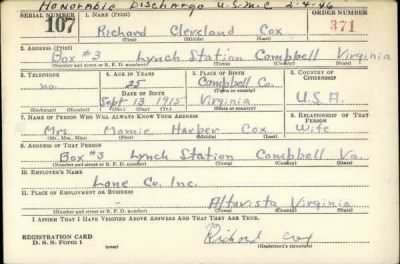 HONORABLE Discharge U.S.M.C 2-4-46
SERIAL NUMBER 107
1. NAME (Print)
ORDER NUMBER 371
Richard Cleveland Cox
(First) (Middle) (Last)
2. ADDRESS (Print)
Box #3 Lynch Station Campbell Virginia
(Number and street or R. F. D. number) (Town) (County) (State)
3. TELEPHONE
4. AGE IN YEARS
5. PLACE OF BIRTH
6. COUNTRY OF CITIZENSHIP
no.
25
Campbell Co.
DATE OF BIRTH
(Town or county)
Sept 13 1915
Virginia
U.S.A.
(Exchange) (Number)
(Mo.) (Day) (Yr.)
(State or country)
7. NAME OF PERSON WHO WILL ALWAYS KNOW YOUR ADDRESS
8. RELATIONSHIP OF THAT PERSON
Mrs. Mamie Harper Cox Wife
(Mr., Mrs., Miss) (First) (Middle) (Last)
9. ADDRESS OF THAT PERSON
Box #3 Lynch Station Campbell Va.
(Number and street or R. F. D. number) (Town) (County) (State)
10. EMPLOYER'S NAME
Lane Co. Inc.
11. PLACE OF EMPLOYMENT OR BUSINESS
Altavista Virginia
(Number and street or R. F. D. number) (Town) (County) (State)
I AFFIRM THAT I HAVE VERIFIED ABOVE ANSWERS AND THAT THEY ARE TRUE.
REGISTRATION CARD
D. S. S. Form 1
(over)
Richard Cox
(Registrant's signature)